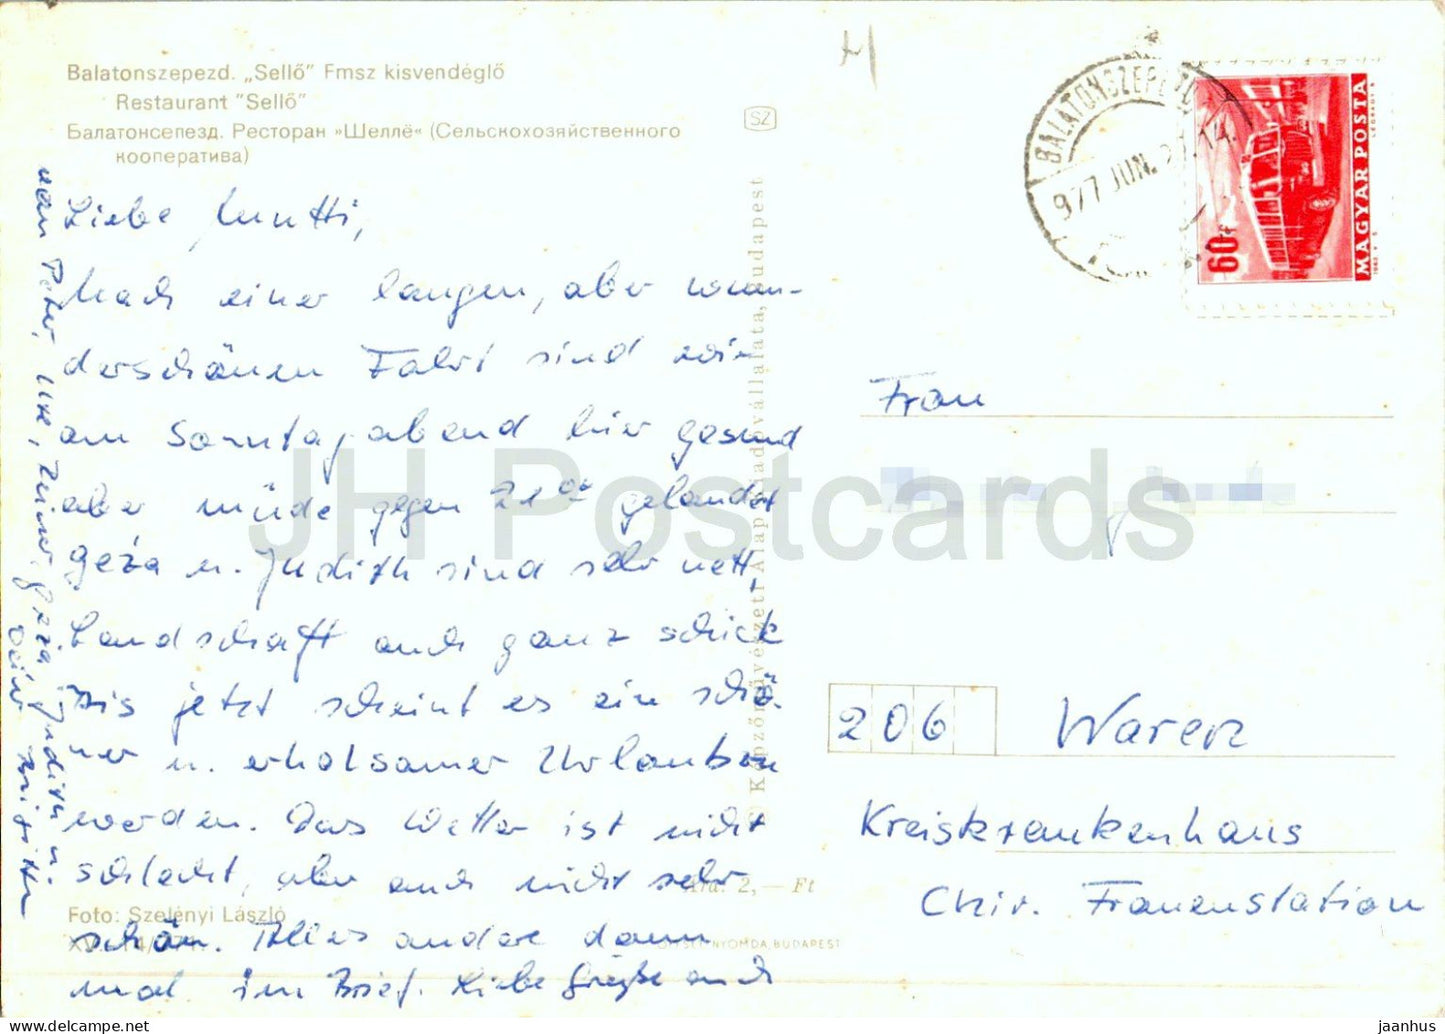 Balatonszepezd. „Sellő” Fmsz kisvendéglő
Restaurant "Sellő"
Балатонсепезд. Ресторан »Шеллё« (Сельскохозяйственного
кооператива)
Liebe Mutti,
Nach einer langen, aber wun-
derschönen Fahrt sind wir
am Sonntagabend hier gesund
aber müde gegen 21⁰⁰ gelandet
Géza u. Judith sind sehr nett,
Landschaft auch ganz schick
Bis jetzt scheint es ein schö-
ner u. erholsamer Urlaub zu
werden. Das Wetter ist nicht
schlecht, aber auch nicht sehr
schön. Alles andere dann
mal im Brief. Liebe Grüße auch
von Peter, Ute, Géza, Judith u.
Deine Brigitte
Foto: Szelényi László
SZ
Képzőművészeti Alap Kiadóvállalata, Budapest
Ára: 2,— Ft
NYOMDA, BUDAPEST
BALATONSZEPEZD
977 JUN. 14
60f
MAGYAR POSTA
LÉGRÁDY S
1963 V. S.
Frau
206 Waren
Kreiskrankenhaus
Chir. Frauenstation
JH Postcards
jaanhus
https://jhpostcards.com